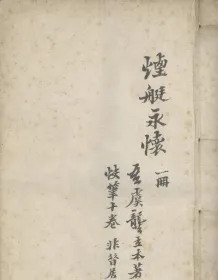 煙艇永懷 一冊
吾虞龔立本著
快筆十卷 非昔居